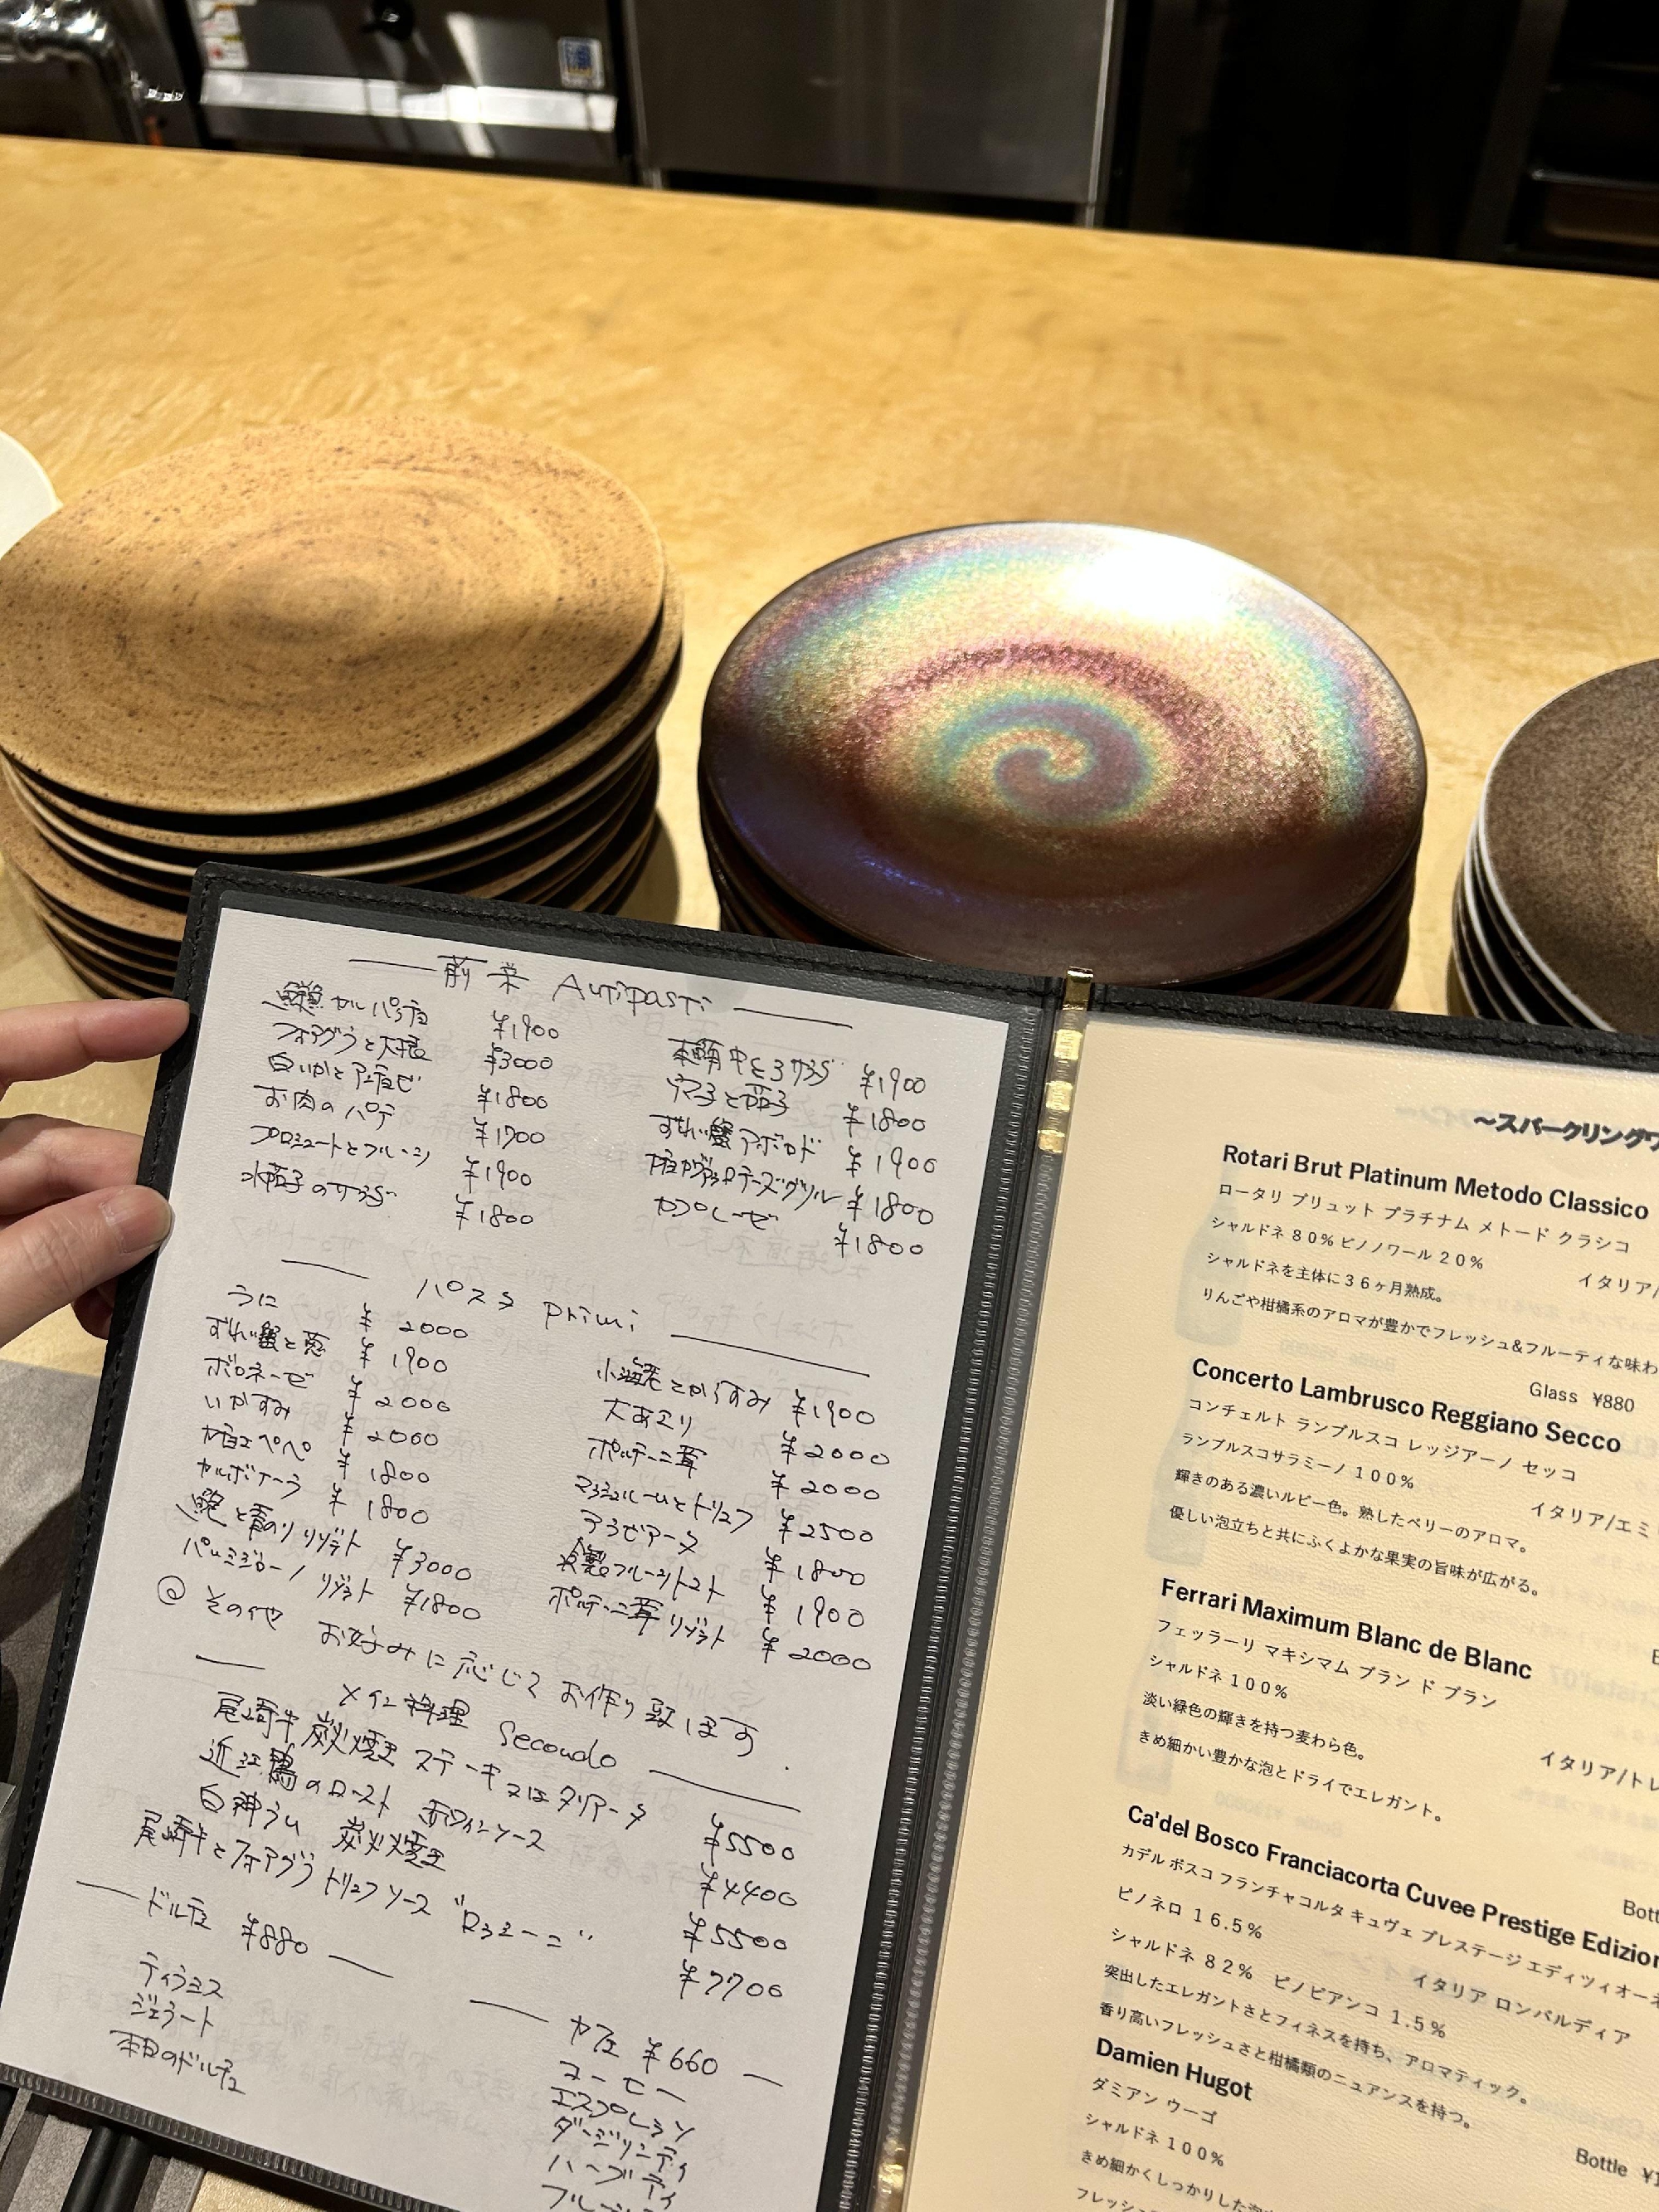 前菜 Antipasti
鮮魚カルパッチョ ¥1900
フォアグラと大根 ¥3000
白いかとアンチョビ ¥1800
お肉のパテ ¥1700
プロシュートとフルーツ ¥1900
水茄子のサラダ ¥1800
本鮪中とろサラダ ¥1900
穴子と茄子 ¥1800
ずわい蟹アボカド ¥1900
チーズグリル ¥1800
カプレーゼ ¥1800
パスタ primi
うに ¥2000
ずわい蟹と葱 ¥1900
ボロネーゼ ¥2000
いかすみ ¥2000
カチョエペペ ¥1800
カルボナーラ ¥1800
鮑と青のりリゾット ¥3000
パルミジャーノリゾット ¥1800
小海老とからすみ ¥1900
大あさり ¥2000
ポルチーニ茸 ¥2000
マッシュルームとトリュフ ¥2500
アラビアータ ¥1800
冷製フルーツトマト ¥1900
ポルチーニ茸リゾット ¥2000
@ その他 お好みに応じて お作り致します
メイン料理 Secondo
尾崎牛 炭火燻 ステーキ又はタリアータ ¥5500
近江鶏のロースト 赤ワインソース ¥4400
白神ラム 炭火燻 ¥5500
尾崎牛とフォアグラ トリュフソース "ロッシーニ" ¥7700
ドルチェ ¥880
ティラミス
ジェラート
本日のドルチェ
カフェ ¥660
コーヒー
エスプレッソ
ダージリンティ
ハーブティ
~スパークリングワ
Rotari Brut Platinum Metodo Classico
ロータリ ブリュット プラチナム メトード クラシコ
シャルドネ 80% ピノノワール 20%
イタリア/
シャルドネを主体に36ヶ月熟成。
りんごや柑橘系のアロマが豊かでフレッシュ&フルーティな味わ
Glass ¥880
Concerto Lambrusco Reggiano Secco
コンチェルト ランブルスコ レッジアーノ セッコ
ランブルスコサラミーノ 100%
イタリア/エミ
輝きのある濃いルビー色。熟したベリーのアロマ。
優しい泡立ちと共にふくよかな果実の旨味が広がる。
Ferrari Maximum Blanc de Blanc
フェッラーリ マキシマム ブラン ド ブラン
シャルドネ 100%
イタリア/トレ
淡い緑色の輝きを持つ麦わら色。
きめ細かい豊かな泡とドライでエレガント。
Bott
Ca'del Bosco Franciacorta Cuvee Prestige Edizion
カデル ボスコ フランチャコルタ キュヴェ プレステージ エディツィオーネ
ピノネロ 16.5%
イタリア ロンバルディア
シャルドネ 82% ピノビアンコ 1.5%
突出したエレガントさとフィネスを持ち、アロマティック。
香り高いフレッシュさと柑橘類のニュアンスを持つ。
Bottle ¥1
Damien Hugot
ダミアン ウーゴ
シャルドネ 100%
きめ細かくしっかりした泡